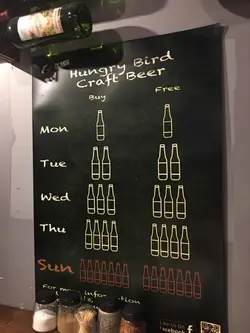 Hungry Bird
Craft Beer
Buy Free
Mon
Tue
Wed
Thu
Sun
For more information